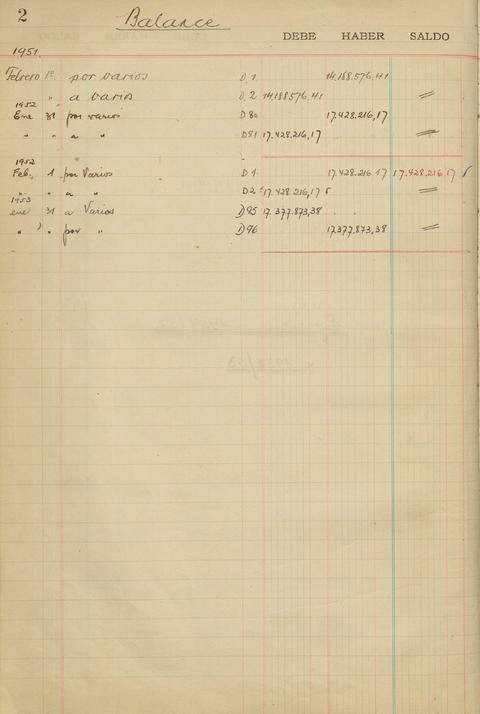 2 Balance
DEBE HABER SALDO
1951.
Febrero 1º por varios D 1 14.188.576.41
" a varios D 2 14.188.576.41 =
1952
Ene 31 por varios D 80 17.428.216,17
" " a " D 81 17.428.216,17 =
1952
Feb. 1 por Varios D 1 17.428.216.17 17.428.216.17
" " a " D 2 17.428.216,17 =
1953
ene 31 a Varios D 95 17.377.873,38
" " por " D 96 17.377.873,38 =